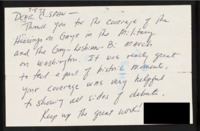 DEAR C-SPAN —
Thank you for the coverage of the
Hearings on Gays in the Military
and the Gay-Lesbian-Bi March
on Washington. It was really great
to feel a part of historic moment.
Your coverage was very helpful
to showing all sides of debate.
Keep up the great work!